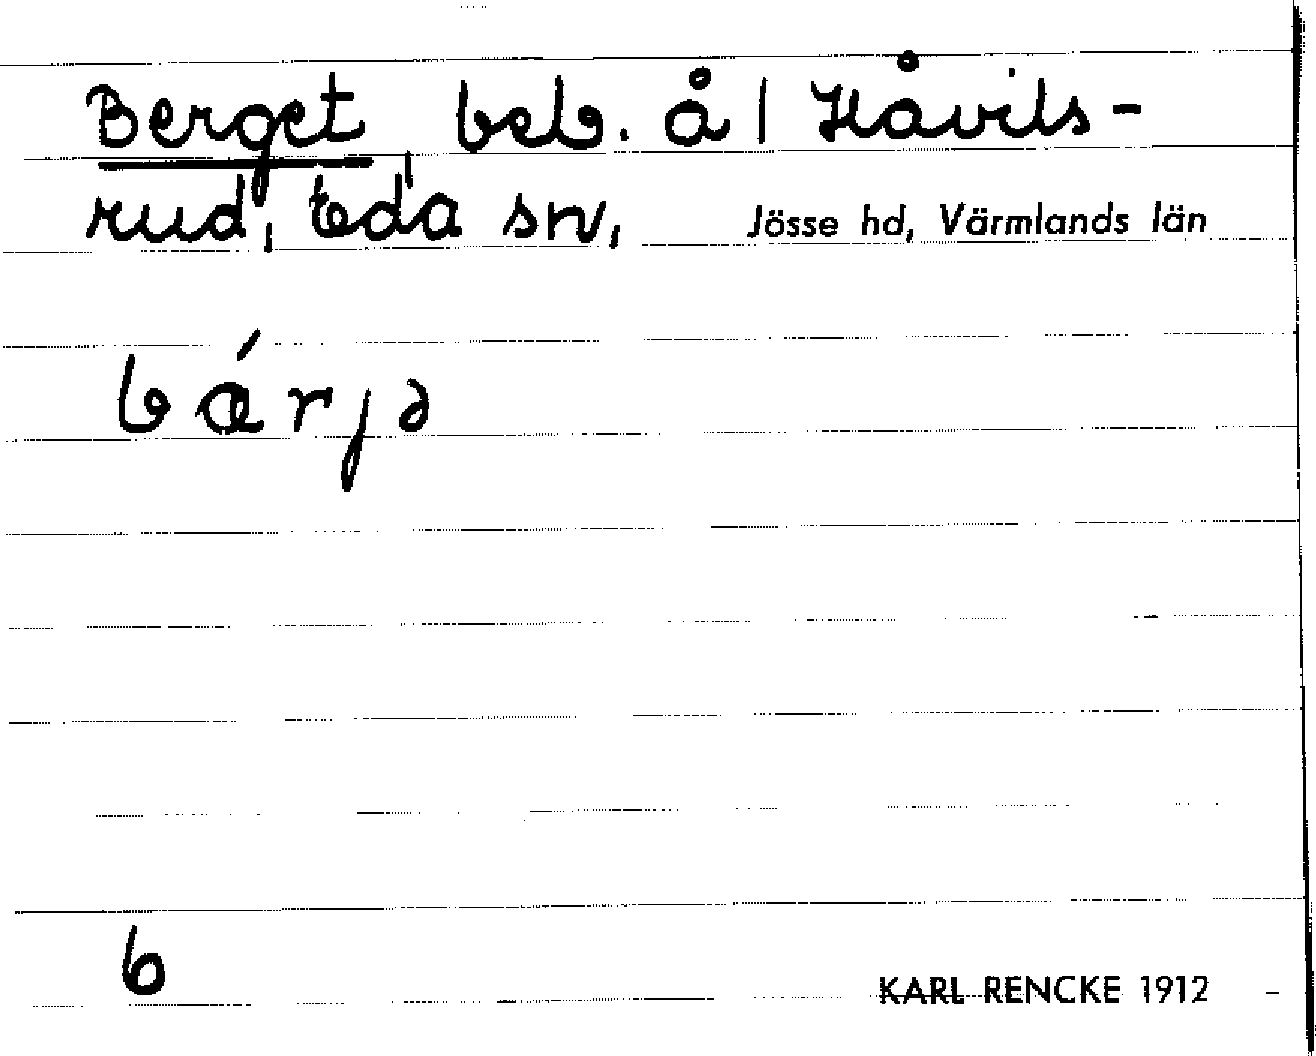 Berget, beb. å/ Håvils-
rud, Eda sn, Jösse hd, Värmlands län
bárjə
6
KARL RENCKE 1912